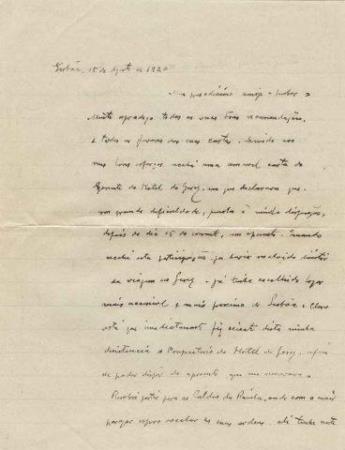 Lisbôa, 15 de Agosto de 1920
Meu presadissimo amigo e senhor
Muito agradeço todas as suas boas recomendações
e todas as suas cartas. devido aos
seus bons esforços recebi uma amavel carta do
Gerente do Hotel do Gerez, em que declarava que
com grande dificuldade, punha á minha disposição,
depois do dia 15 do corrente, um aposento. Quando
recebi esta participação ja havia
da viagem ao Gerez e já tinha escolhido logar
mais acessivel e mais proximo de Lisbôa. Claro
está que imediatamente fiz sciente desta minha
desistencia o Proprietario do Hotel do Gerez, afim
de poder dispôr do aposento que me reservava.
Partirei para as Caldas da Rainha, onde com o maior
prazer espero receber as suas ordens. até